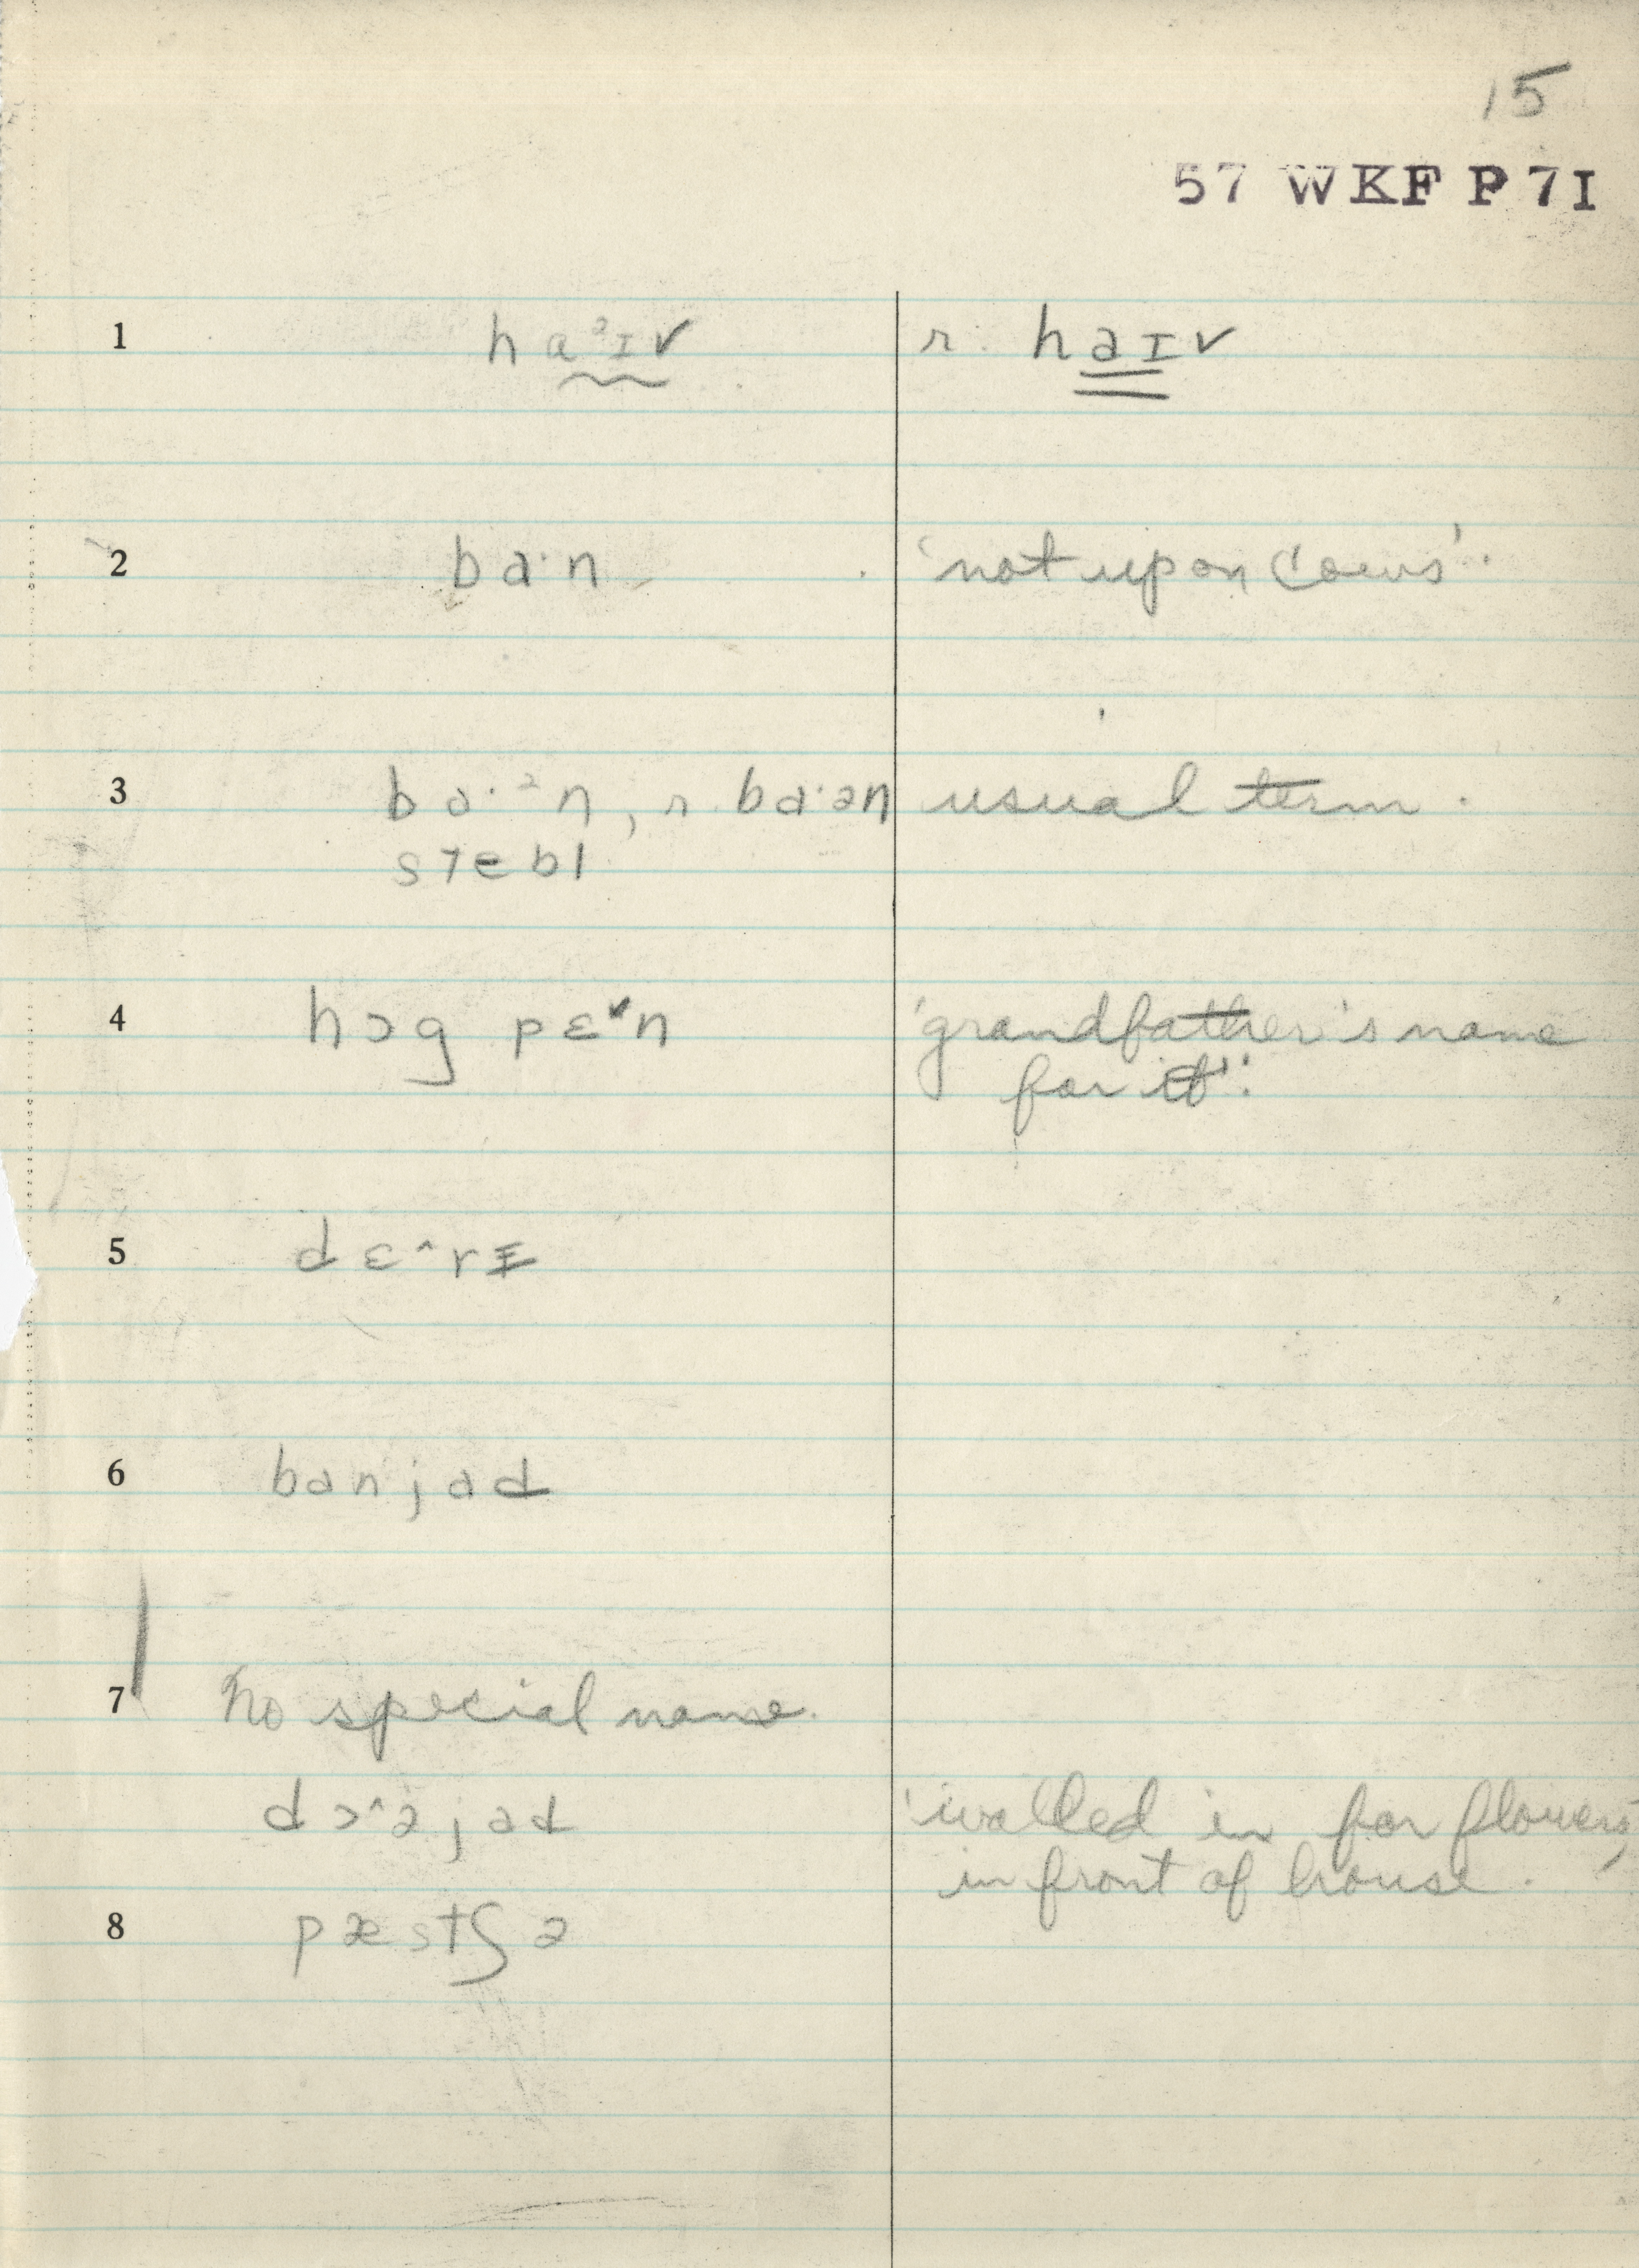 15
57 WKF P 7I
1 ha²ɪv r. haɪv
2 ba·n 'not upon Cows'.
3 ba·²n, r. ba·ən usual term.
stebl
4 hɔg pɛˇn 'grandfather's name
for it'.
5 dɛ^rɪ
6 banjad
7 No special name.
dɔ^əjad 'walled in for flowers,
in front of house.'
8 pæstʃə